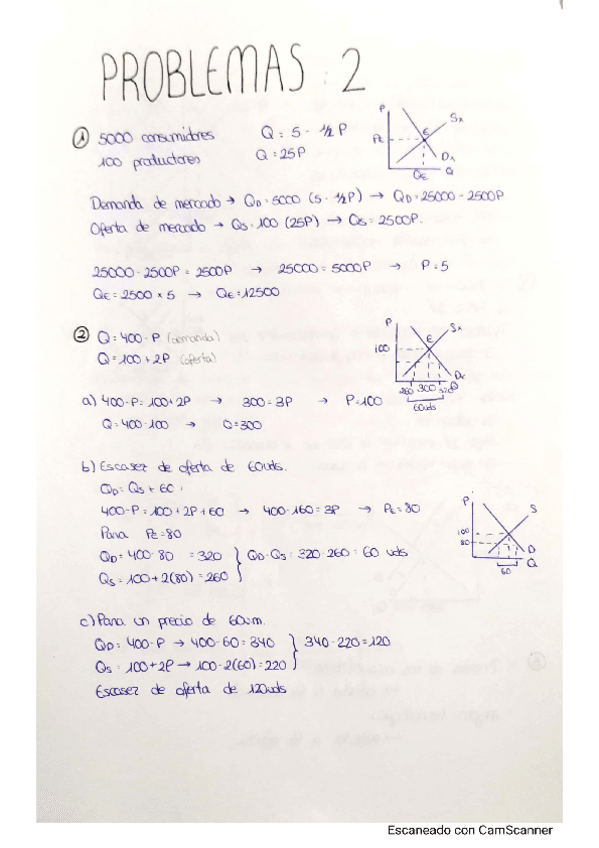 PROBLEMAS : 2
① 5000 consumidores Q = 5 - 1/2 P
100 productores Q = 25P
P Sx
PE E
Dx
QE Q
Demanda de mercado → QD = 5000 (5 - 1/2P) → QD = 25000 - 2500P
Oferta de mercado → QS = 100 (25P) → QS = 2500P.
25000 - 2500P = 2500P → 25000 = 5000P → P = 5
QE = 2500 × 5 → QE = 12500
② Q = 400 - P (demanda)
Q = 100 + 2P (oferta)
P Sx
100 E
Dx
260 300 320 Q
60uds
a) 400 - P = 100 + 2P → 300 = 3P → P = 100
Q = 400 - 100 → Q = 300
b) Escasez de oferta de 60uds.
QD = QS + 60
400 - P = 100 + 2P + 60 → 400 - 160 = 3P → PE = 80
Para PE = 80
QD = 400 - 80 = 320 } QD - QS = 320 - 260 = 60 uds
QS = 100 + 2(80) = 260
P S
100
80
D
60 Q
c) Para un precio de 60um.
QD = 400 - P → 400 - 60 = 340 } 340 - 220 = 120
QS = 100 + 2P → 100 - 2(60) = 220
Escasez de oferta de 120uds
Escaneado con CamScanner